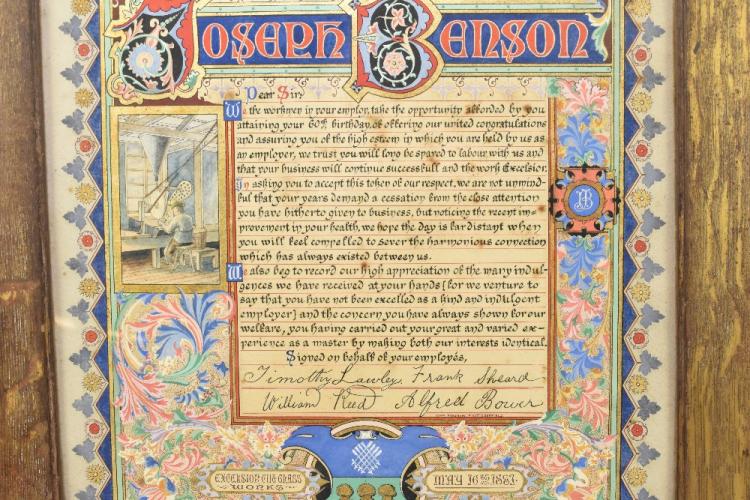 JOSEPH BENSON
Dear Sir
We the workmen in your employ, take the opportunity afforded by you
attaining your 60th birthday, of offering our united congratulations
and assuring you of the high esteem in which you are held by us as
an employer, we trust you will long be spared to labour with us and
that your business will continue successfull and the work Excelsior
In asking you to accept this token of our respect, we are not unmind-
ful that your years demand a cessation from the close attention
you have hitherto given to business, but noticing the recent im-
provement in your health, we hope the day is far distant when
you will feel compelled to sever the harmonious connection
which has always existed between us.
We also beg to record our high appreciation of the many indul-
gences we have received at your hands (for we venture to
say that you have not been excelled as a kind and indulgent
employer) and the concern you have always shown for our
welfare, you having carried out your great and varied ex-
perience as a master by making both our interests identical.
Signed on behalf of your employés,
Timothy Lawley, Frank Sheard
William Reed Alfred Bower
JB
EXCELSIOR CUT GLASS
WORKS
MAY 16th 1887.